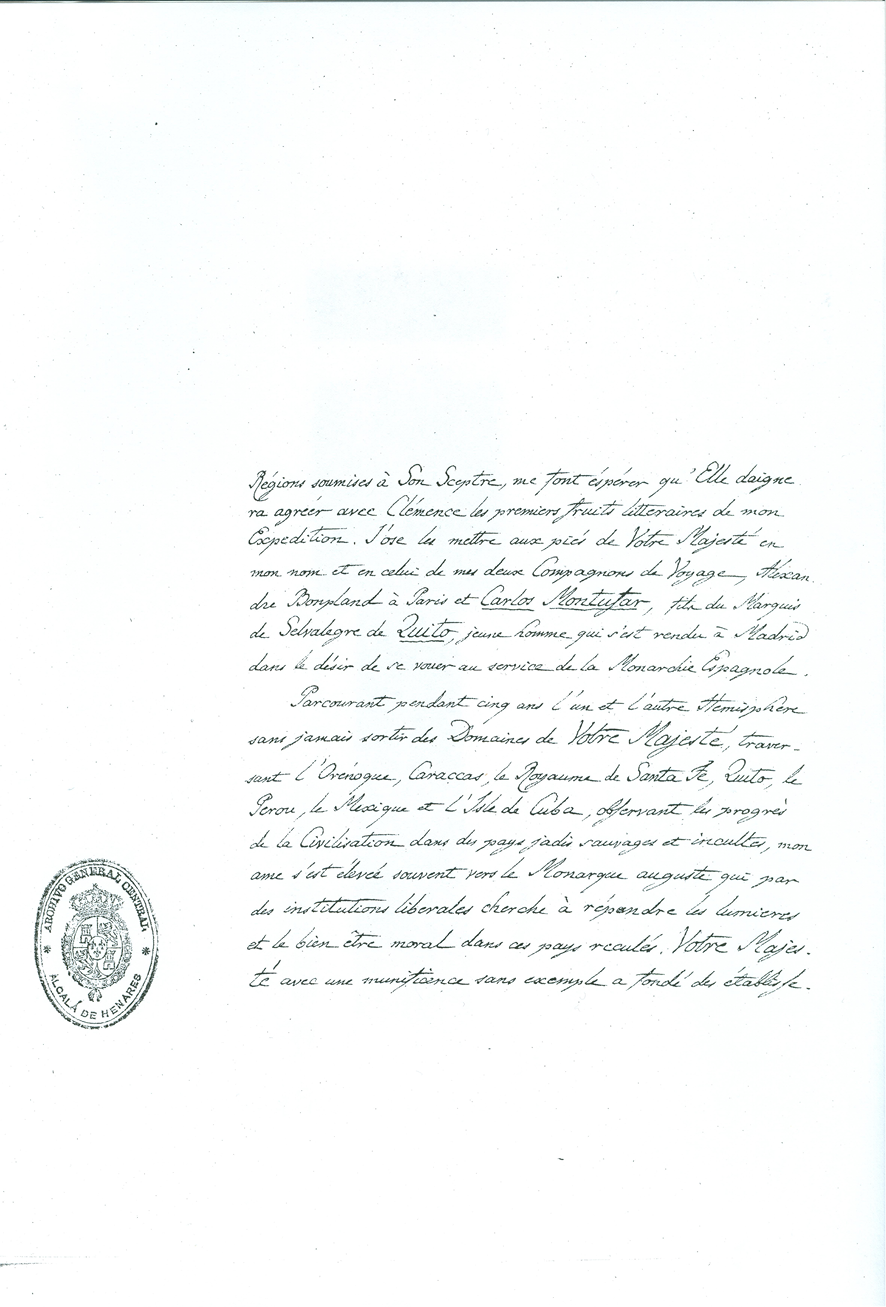 Régions soumises à Son Sceptre, me font éspérer qu'Elle daigne
ra agréer avec Clémence les premiers fruits litteraires de mon
Expedition. J'ose les mettre aux piés de Votre Majesté en
mon nom et en celui de mes deux Compagnons de Voyage, Aléxan
dre Bonpland à Paris et Carlos Montufar, fils du Marquis
de Selvalegre de Quito, jeune homme qui s'est rendu à Madrid
dans le désir de se vouer au service de la Monarchie Espagnole.
Parcourant pendant cinq ans l'un et l'autre Hemisphère
sans jamais sortir des Domaines de Votre Majesté, traver-
sant l'Orénoque, Caraccas, le Royaume de Santa Fe, Quito, le
Perou, le Mexique et l'Isle de Cuba, observant les progrès
de la Civilisation dans des pays jadis sauvages et incultes, mon
ame s'est élevée souvent vers le Monarque auguste qui par
des institutions liberales cherche à répandre les lumieres
et le bien être moral dans ces pays reculés. Votre Majes-
té avec une munificence sans exemple a fondé des établisse-
ARCHIVO GENERAL CENTRAL
ALCALÁ DE HENARES